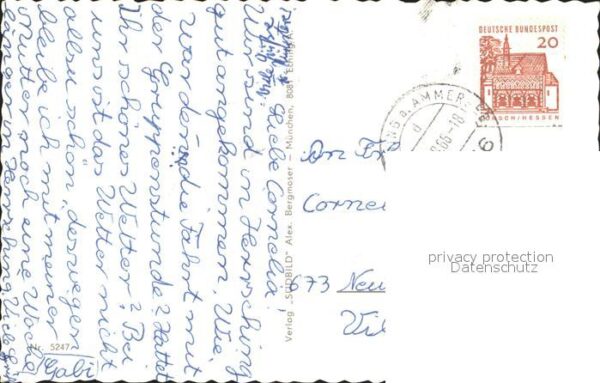 Liebe Cornelia!
Wir sind in Herrsching
gut angekommen. Wie
war denn die Fahrt mit
der Gruppenstunde? Hattet
Ihr schönes Wetter? Bei
uns ist das Wetter nicht
allzu schön, deswegen
bleibe ich mit meiner
Mutter noch eine Woche
länger in Herrsching. Viele
Gabi
Nr. 5247
Verlag „SÜDBILD" Alex. Bergmoser - München, 8081 Eching
DEUTSCHE BUNDESPOST
20
LORSCH/HESSEN
a. AMMERSEE
An Fr
Corne
673 Neu
Vil
privacy protection
Datenschutz